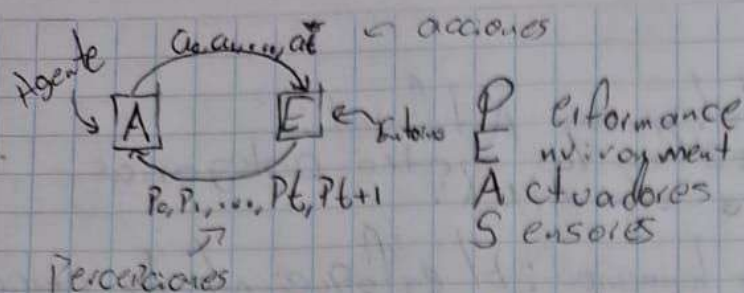 Agente
a0, a1, ..., at ← acciones
A
E
← Entorno
P0, P1, ..., Pt, Pt+1
Percepciones
P erformance
E nvironment
A ctuadores
S ensores